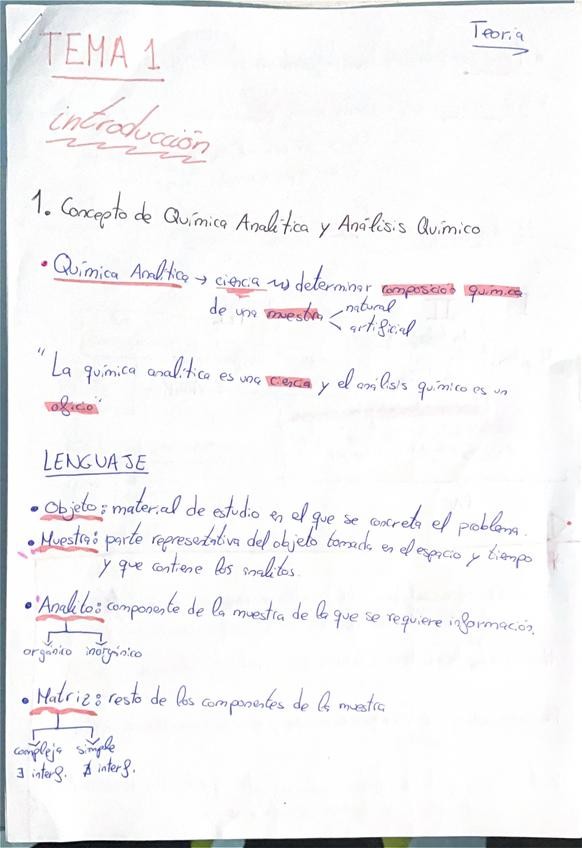 Teoria
TEMA 1
introducción
1. Concepto de Química Analítica y Análisis Químico
• Química Analítica → ciencia ⇝ determinar composición química
de una muestra natural
artificial
"La química analítica es una ciencia y el análisis químico es un
oficio"
LENGUAJE
• Objeto: material de estudio en el que se concreta el problema.
• Muestra: parte representativa del objeto tomada en el espacio y tiempo
y que contiene los analitos.
• Analito: componente de la muestra de la que se requiere información.
orgánico inorgánico
• Matriz: resto de los componentes de la muestra
compleja simple
∃ interf. ∄ interf.